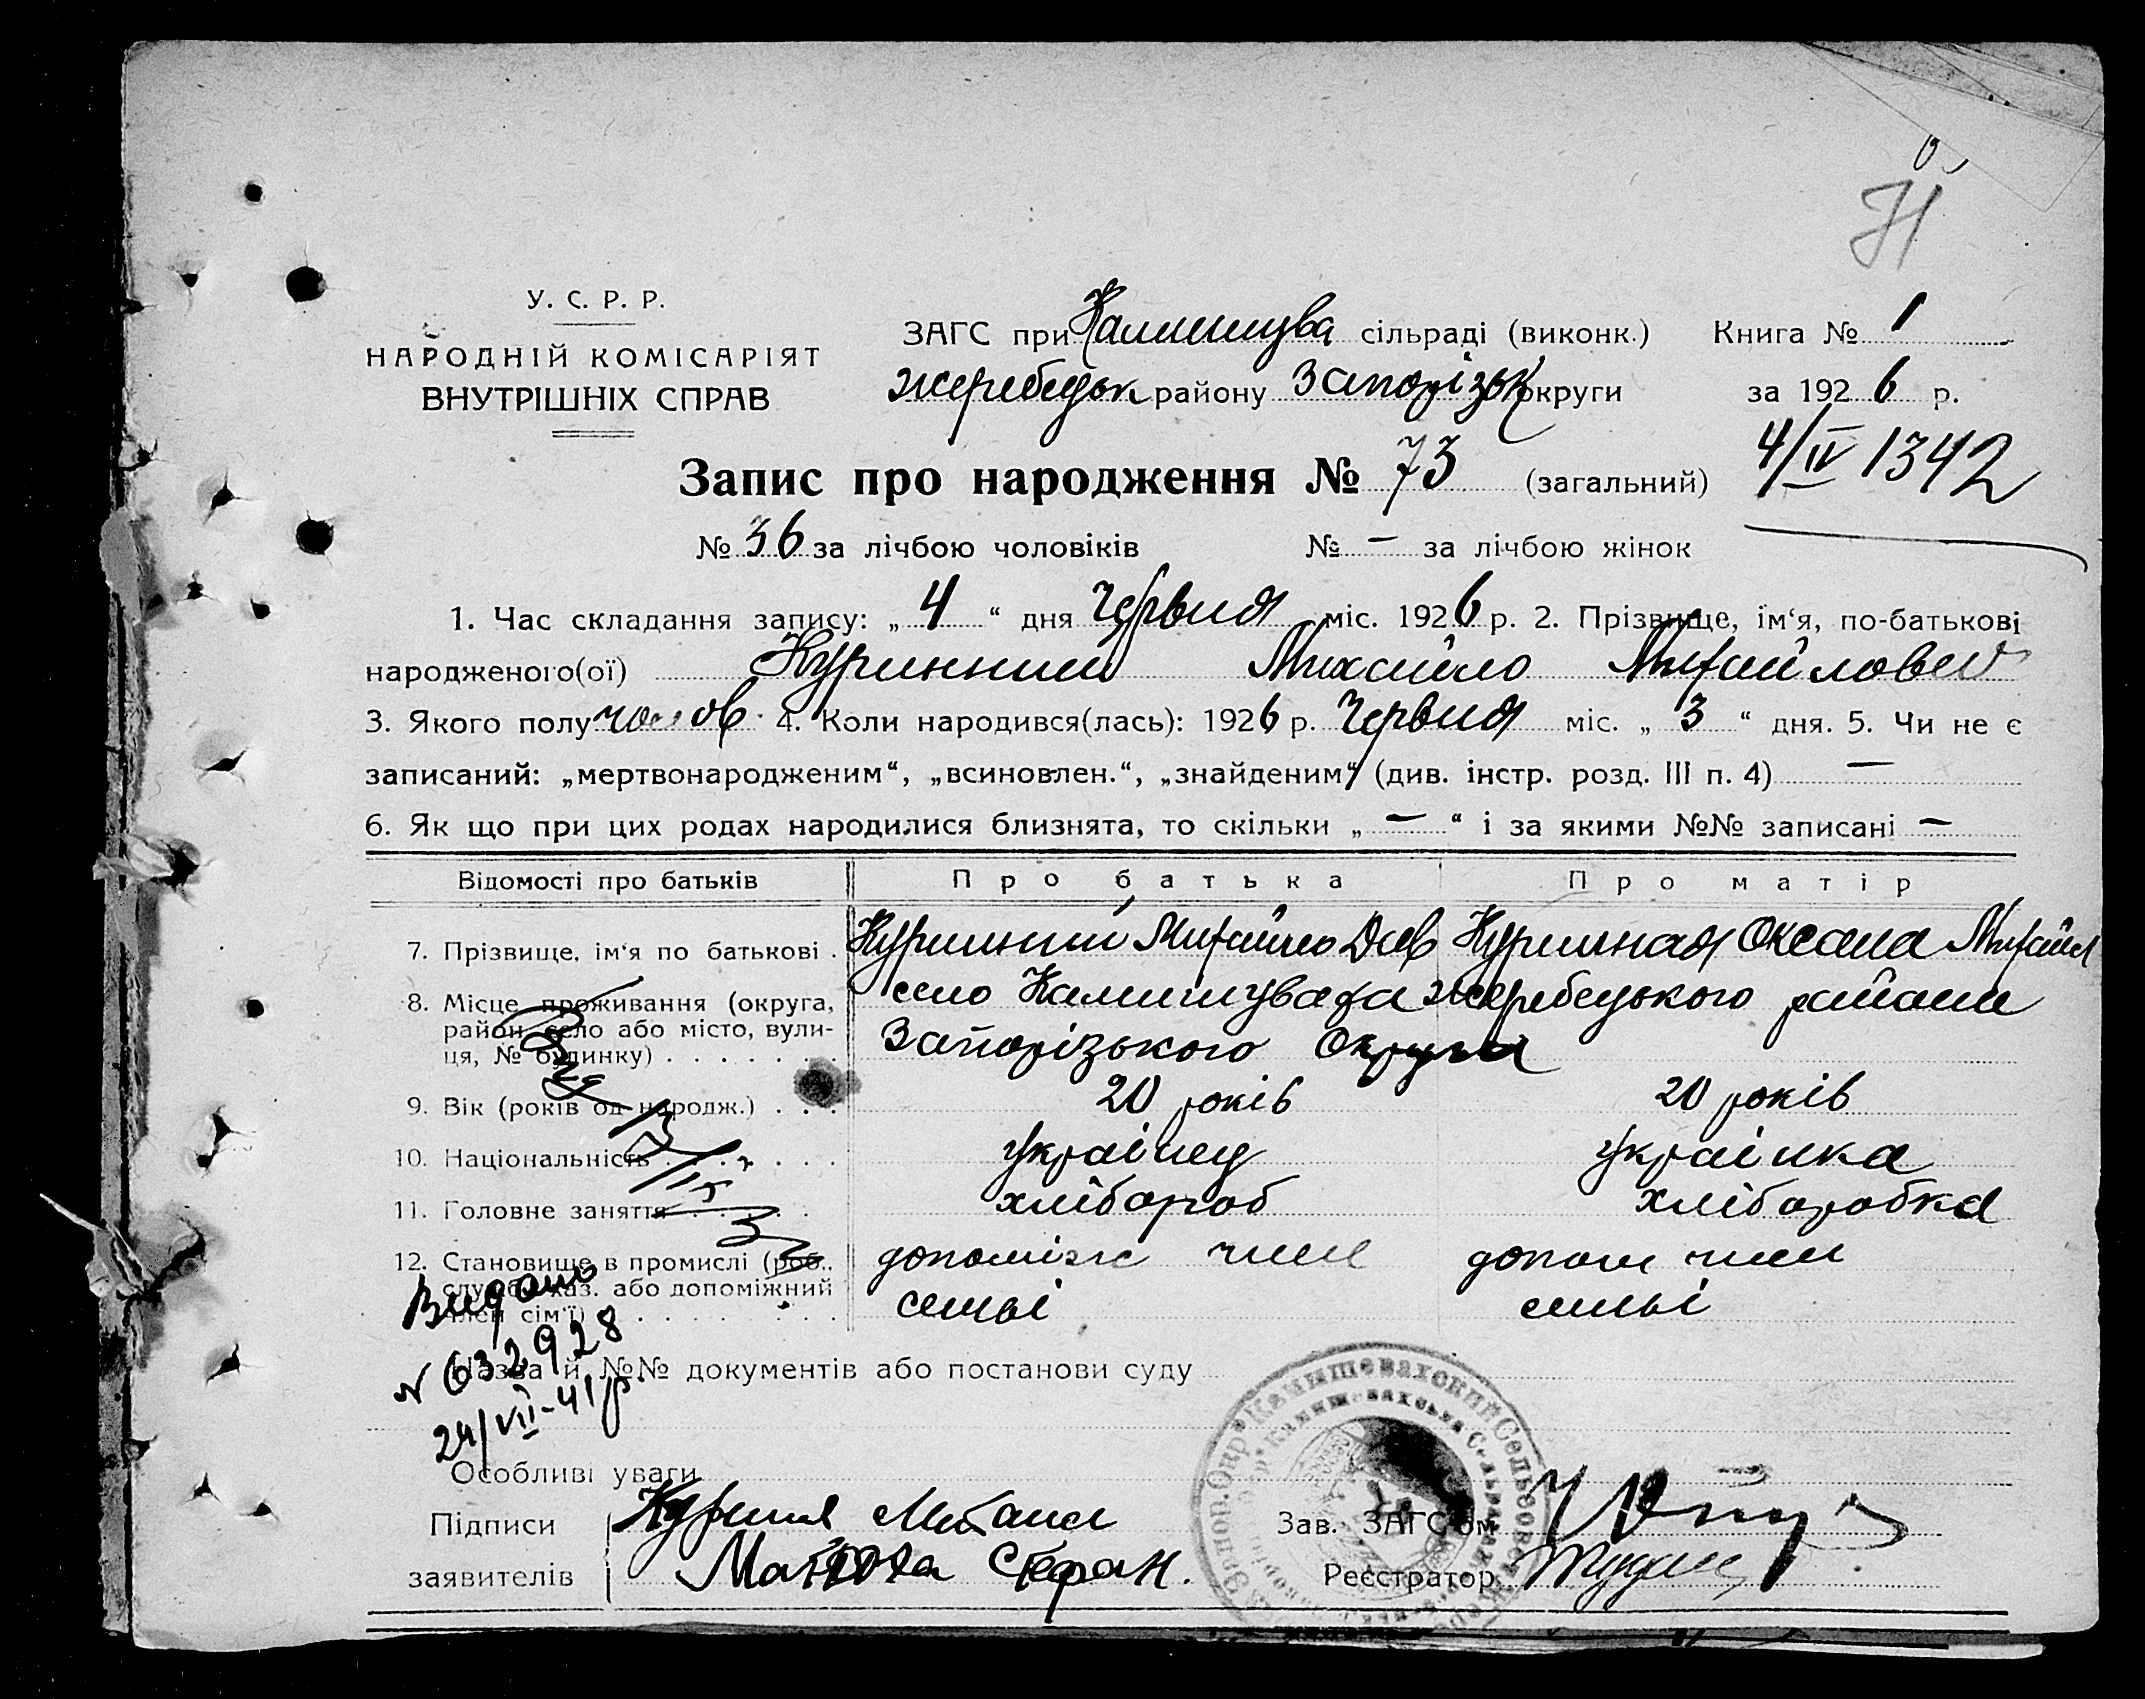 У. С. Р. Р.
НАРОДНІЙ КОМІСАРІЯТ
ВНУТРІШНІХ СПРАВ
ЗАГС при сільраді (виконк.) Книга № 1
жеребецьк району Запорізьк округи за 1926 р.
4/IV 1342
Запис про народження № 73 (загальний)
№ 36 за лічбою чоловіків № — за лічбою жінок
1. Час складання запису: „ 4 “ дня Червня міс. 1926 р. 2. Прізвище, ім‘я, по-батькові
народженого(ої) Куринний Михайло Михайлович
3. Якого полу чолов. 4. Коли народився(лась): 1926 р. Червня міс. „ 3 “ дня. 5. Чи не є
записаний: „мертвонародженим“, „всиновлен.“, „знайденим“ (див. інстр. розд. III п. 4) —
6. Як що при цих родах народилися близнята, то скільки „ — “ і за якими №№ записані —
Відомості про батьків Про батька Про матір
7. Прізвище, ім‘я по батькові . Куринний Михайло Куринная Оксана Михайл
8. Місце проживання (округа, район, село або місто, вулиця, № будинку) село Камишуваха жеребецького района
Запорізького Округи
9. Вік (років од народж.) 20 років 20 років
10. Національність українец українка
11. Головне заняття хлібороб хліборобка
12. Становище в промислі (роб., служб., хаз. або допоміжний член сім‘ї) допоміж член допом член
семьі семьі
Видано
№ 632928
24/VII-41р.
Назва й №№ документів або постанови суду
Особливі уваги
Підписи
заявителів Стефан.
Зав. ЗАГС‘ом
Реєстратор